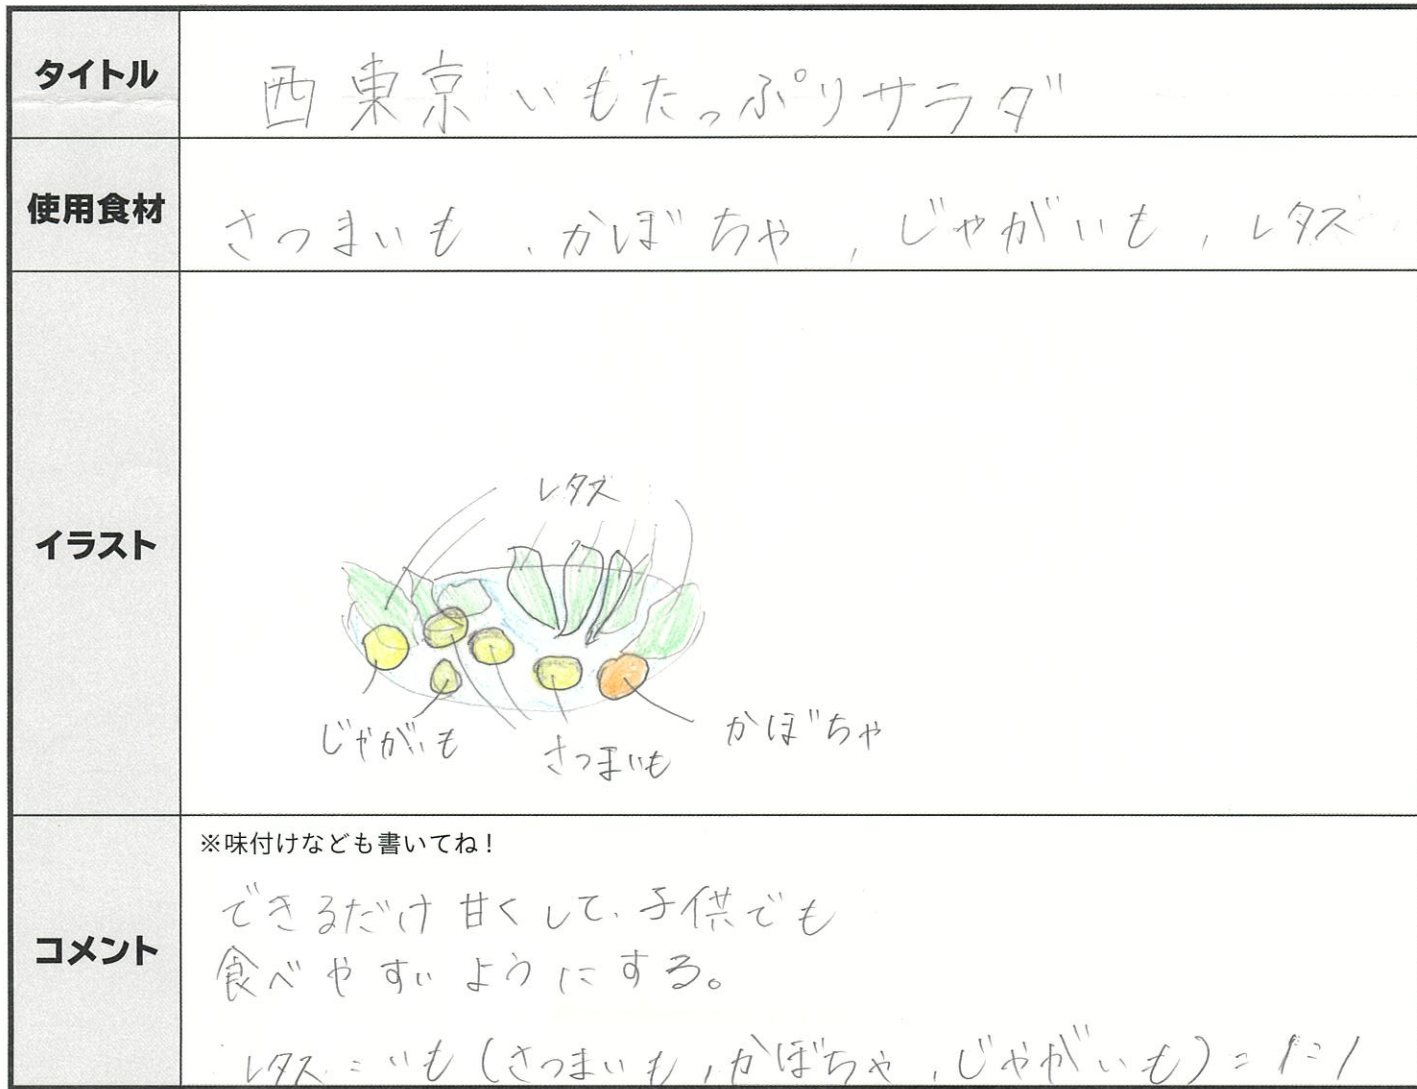 タイトル
西東京いもたっぷりサラダ
使用食材
さつまいも、かぼちゃ、じゃがいも、レタス
イラスト
レタス
じゃがいも
さつまいも
かぼちゃ
コメント
※味付けなども書いてね！
できるだけ甘くして、子供でも
食べやすいようにする。
レタス：いも(さつまいも、かぼちゃ、じゃがいも)=1:1